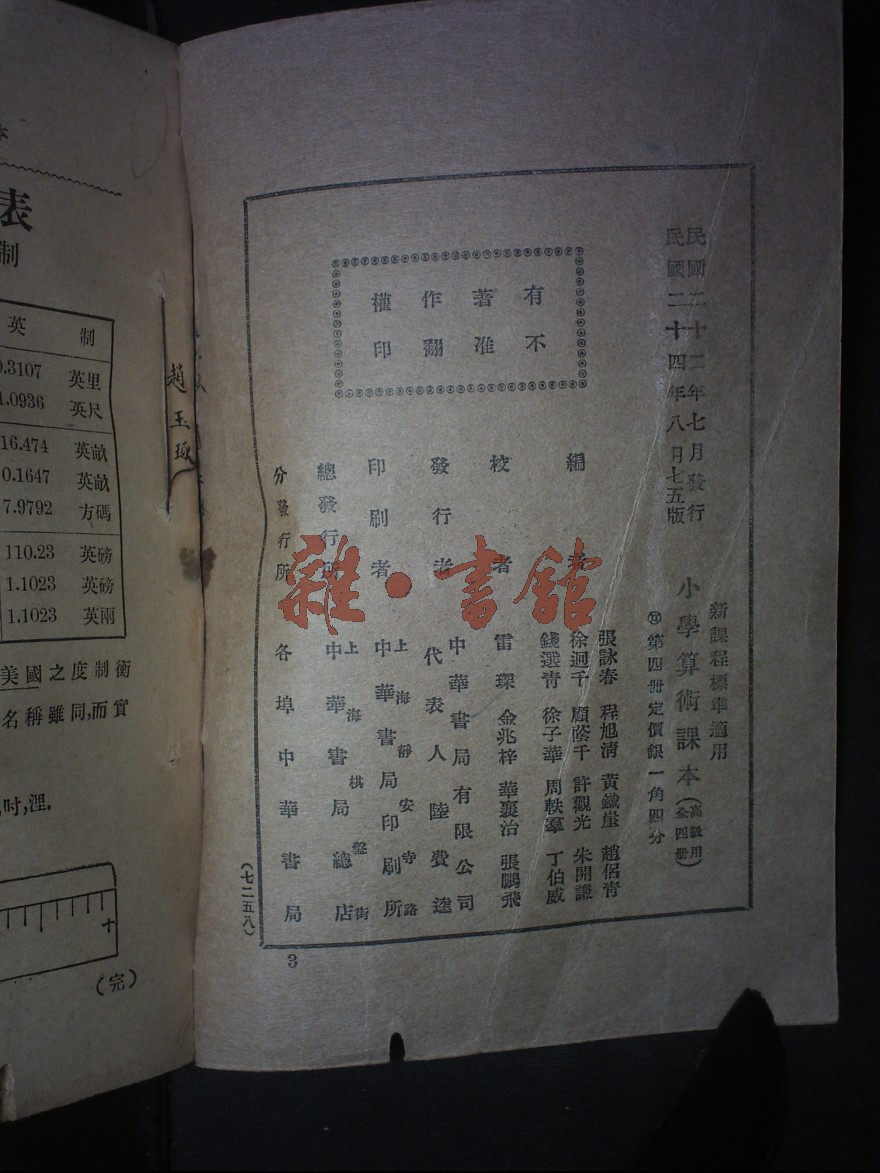 民國二十二年七月發行
民國二十四年八月七五版
新課程標準適用
小學算術課本(高級用 全四册)
第四册定價銀一角四分
有著作權
不准翻印
編者
張詠春 程旭清 黃鐵崖 趙侶青
徐迥千 顧蔭千 許觀光 朱開謙
錢選青 徐子華 周軼羣 丁伯威
校者
雷琛 金兆梓 華襄治 張鵬飛
發行者
中華書局有限公司
代表人 陸費逵
印刷者
上海靜安寺路
中華書局印刷所
總發行所
上海棋盤街
中華書局總店
分發行所
各埠中華書局
(七二五八)
3
雜·書館
趙玉琢
表
制
英 制
0.3107 英里
1.0936 英尺
16.474 英畝
0.1647 英畝
7.9792 方碼
110.23 英磅
1.1023 英磅
1.1023 英兩
美國之度制衡
名稱雖同,而實
,吋,浬.
十
(完)